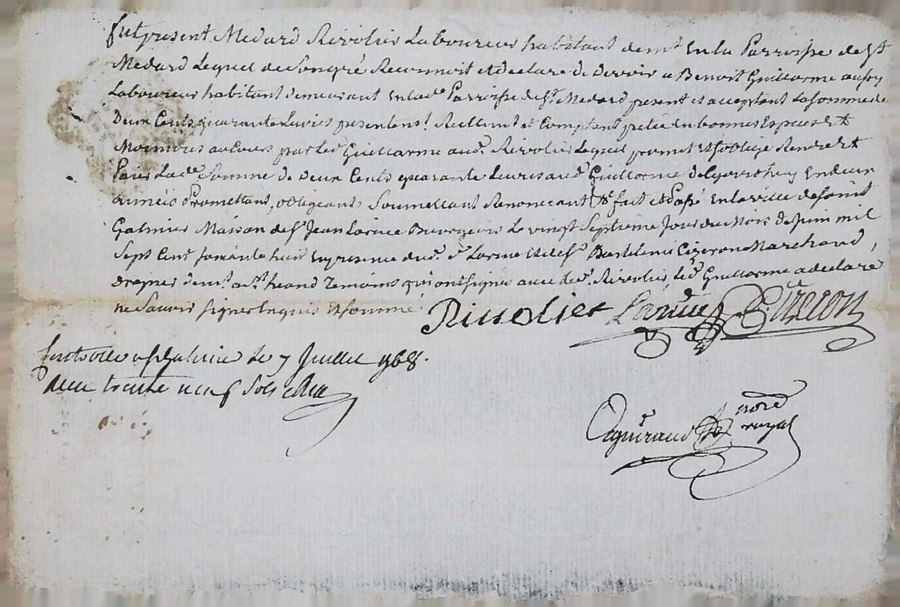 fut present Medard Rivolier Laboureur habitant demt En la Parroisse de St
Medard Lequel de Son gré Reconnoit et declare de devoir a Benoit Guillarme aussy
Laboureur habitant demeurant En lade Parroisse de St Medard present et acceptant La Somme de
Deux Cents quarante Livres presentemt Reellemt et Comptant en bonnes Especes et
Monnoies au Cours par led Guillarme aud Rivolier Lequel promet et soblige Rendre et
Paier Lade Somme de deux Cents quarante Livres aud Guillarme En deux
années Promettant, obligeant Soumettant Renoncant &c fait et Passé En la ville de Saint
Galmier Maison de Sr Jean Bourgeois Le vingt Septieme Jour du Mois de Juin mil
Sept Cent soixante huit En presence dud Sr et de Sr Barthelemi Cizeron Marchand,
drapier demt a St heand Temoins qui ont Signé avec led Rivolier, led Guillarme a declaré
ne Savoir Signer Enquis et Sommé
Rivolier Cizeron
a St Galmier le 7 Juillet 1768.
trente neuf Sols
nore
royal